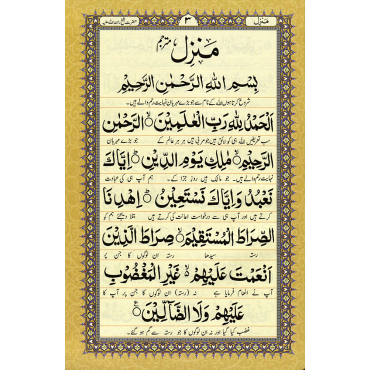 منزل ۳
منزل مترجم
بِسْمِ اللهِ الرَّحْمٰنِ الرَّحِيْمِ
شروع کرتا ہوں اللہ کے نام سے جو بڑے مہربان نہایت رحم والے ہیں۔
اَلْحَمْدُ لِلّٰهِ رَبِّ الْعٰلَمِيْنَ ۙ الرَّحْمٰنِ
سب تعریفیں اللہ ہی کو لائق ہیں جو مربی ہیں ہر ہر عالم کے جو بڑے مہربان
الرَّحِيْمِ ۙ مٰلِكِ يَوْمِ الدِّيْنِ ؕ اِيَّاكَ
نہایت رحم والے ہیں۔ جو مالک ہیں روز جزا کے۔ ہم آپ ہی کی عبادت
نَعْبُدُ وَاِيَّاكَ نَسْتَعِيْنُ ؕ اِهْدِنَا
کرتے ہیں اور آپ ہی سے درخواست اعانت کی کرتے ہیں بتلا دیجئے ہم کو
الصِّرَاطَ الْمُسْتَقِيْمَ ۙ صِرَاطَ الَّذِيْنَ
رستہ سیدھا رستہ ان لوگوں کا جن پر
اَنْعَمْتَ عَلَيْهِمْ ۙ غَيْرِ الْمَغْضُوْبِ
آپ نے انعام فرمایا ہے نہ (رستہ) ان لوگوں کا جن پر آپ کا
عَلَيْهِمْ وَلَا الضَّآلِّيْنَ ۧ
غضب کیا گیا اور نہ ان لوگوں کا جو رستہ سے گم ہو گئے۔